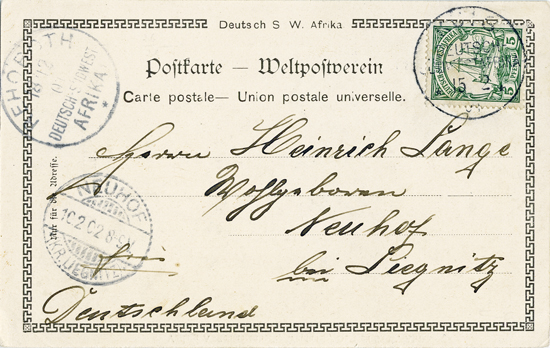 Deutsch S W. Afrika
Postkarte — Weltpostverein
Carte postale— Union postale universelle.
DEUTSCH-SÜDWEST
AFRIKA
5 5
Herrn Heinrich Lange
Wohlgeboren
Neuhof
bei Liegnitz
Deutschland
Nur für die Adresse.
NEUHOF
10.2.02.8-9